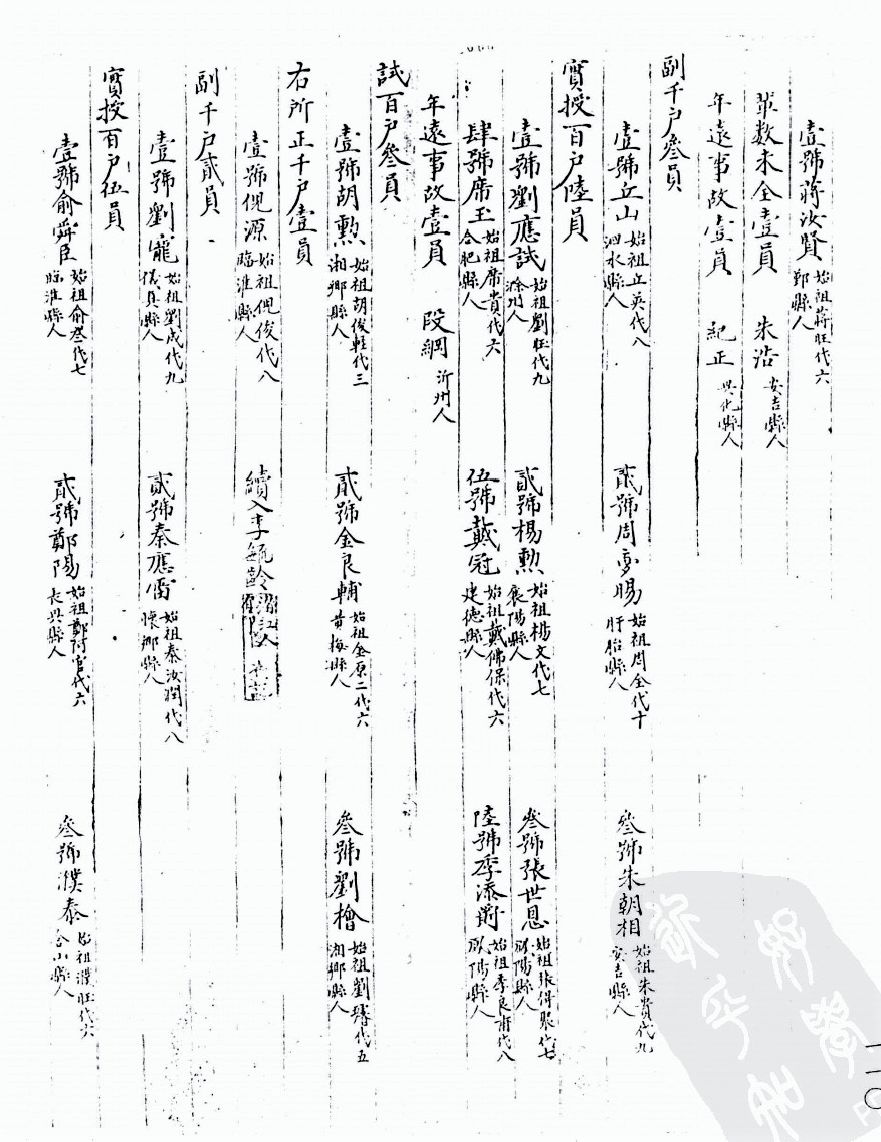 壹號蔣汝賢 始祖蔣旺代六 鄞縣人
輩數未全壹員 朱浩 安吉縣人
年遠事故壹員 紀正 興化縣人
副千户叄員
壹號丘山 始祖丘英代八 泗水縣人 貳號周夢賜 始祖周全代十 盱眙縣人 叄號朱朝相 始祖朱貴代九 安吉縣人
實授百户陸員
壹號劉應試 始祖劉旺代九 滁州人 貳號楊勲 始祖楊文代七 襄陽縣人 叄號張世恩 始祖張得代七 陽縣人
肆號席玉 始祖席貴代六 合肥縣人 伍號戴冠 始祖戴佛保代六 建德縣人 陸號李添 始祖李良甫代八 陽縣人
年遠事故壹員 段綱 沂州人
試百户叄員
壹號胡勲 始祖胡俊輕代三 湘鄉縣人 貳號金良輔 始祖金原二代六 黄梅縣人 叄號劉檜 始祖劉代五 湘鄉縣人
右所正千户壹員
壹號倪源 始祖倪俊代八 臨淮縣人 續入李毓齡
副千户貳員
壹號劉寵 始祖劉成代九 儀真縣人 貳號秦應雷 始祖秦汝潤代八 懷鄉縣人
實授百户伍員
壹號俞舜臣 始祖俞叄代七 臨淮縣人 貳號鄭陽 始祖鄭官代六 長興縣人 叄號濮泰 始祖濮旺代六 含山縣人
一一〇